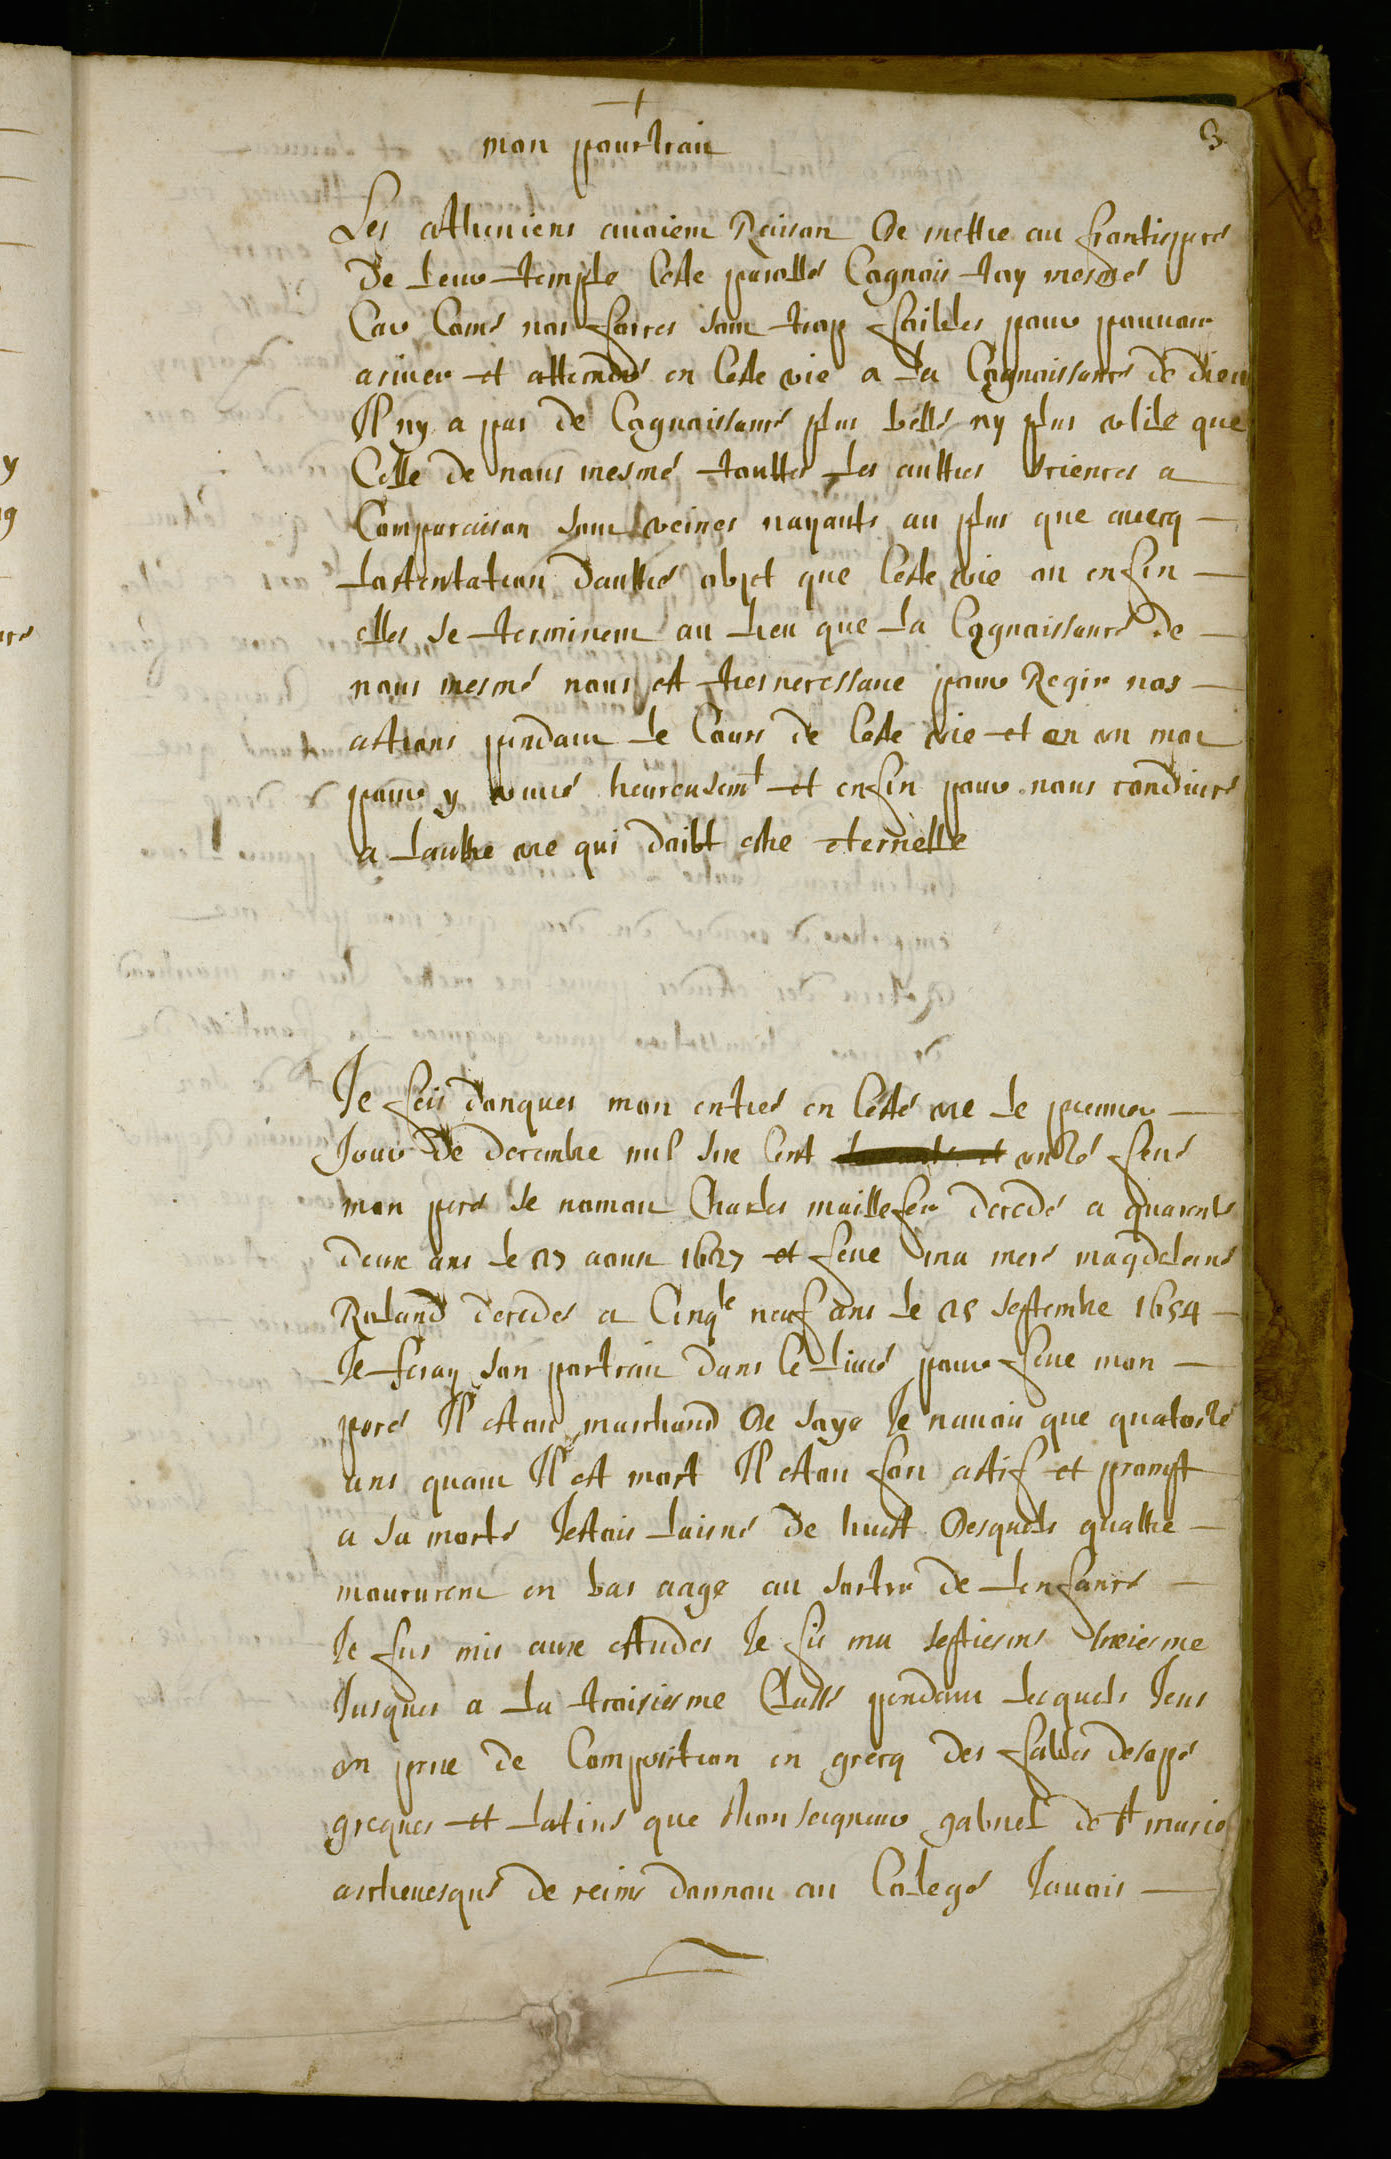 3
mon pourtrait
Les atheniens avoient Raison de mettre au frontispice
de leur temple ceste parolle Cognois toy mesme
Car come nos forces sont trop foibles pour pouvoir
ariver et attendre en ceste vie a la Cognoissance de dieu
Il ny a pas de Cognoissance plus belle ny plus utile que
Celle de nous mesme touttes les auttres sciences a
Comparaison sont veines nayants au plus que avecq
lostentation dauttre objet que ceste vie ou enfin
elles se terminent au lieu que la Cognoissance de
nous mesme nous est tres necessaire pour Regir nos
actions pendant le Cours de ceste vie et en un mot
pour y vivre heureusemt et enfin pour nous conduire
a lauttre vie qui doibt estre eternelle
Je feis donques mon entree en ceste vie le premier
Jour de decembre mil six cent unze feu
mon pere se nomoit Charles maillefer decede a quarente
deux ans le 27 aoust 1627 et feue ma mere magdeleine
Roland decedee a Cinqte neuf ans le 25 septembre 1654
Je feray son portrait dans ce livre pour feue mon
pere Il estoit marchand de saye Je navois que quatorze
ans quant Il est mort Il estoit fort actif et prompt
a sa morte Jestois laisne de huict desquels quattre
moururent en bas aage au sortir de lenfance
Je fus mis aux etudes Je fis ma septiesme sixiesme
Jusques a la troisiesme Classe pendant lesquels Jeus
un prix de Composition en grecq des fables desope
greques et latins que Monseigneur gabriel de Ste marie
archevesque de reims donnoit au Colege Javois